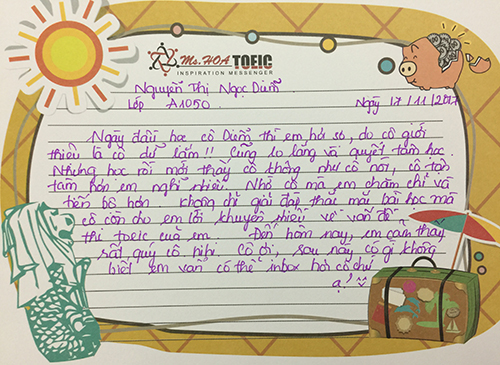 Ms. HOA TOEIC
INSPIRATION MESSENGER
Nguyễn Thị Ngọc Diễm
Lớp A1050 Ngày 17/11/2017
Ngày đầu học cô Diễm thì em hơi sợ, do cô giới
thiệu là cô dữ lắm!! Cũng lo lắng và quyết tâm học.
Nhưng học rồi mới thấy cô không như cô nói, cô tận
tâm hơn em nghĩ nhiều. Nhờ cô mà em chăm chỉ và
tiến bộ hơn. Không chỉ giải đáp thắc mắc bài học mà
cô còn cho em lời khuyên nhiều về vấn đề
thi toeic của em. Đến hôm nay, em cảm thấy
rất quý cô hihi. Cô ơi, sau này có gì không
biết em vẫn có thể inbox hỏi cô chứ
ạ!